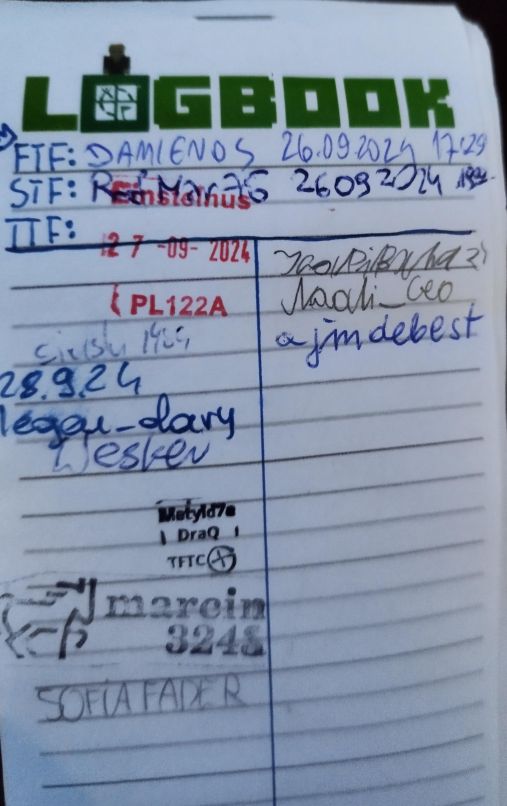 LOGBOOK
FTF: DAMIENOS 26.09.2024 17:29
STF: Red Mar76 26092024
Einsteinus
TTF:
27 -09- 2024
PL122A
28.9.24
legen_dary
Wesker
Matyld7a
i DraQ i
TFTC
marcin
3248
SOFIAFADER
Naali_Geo
ajmdebest